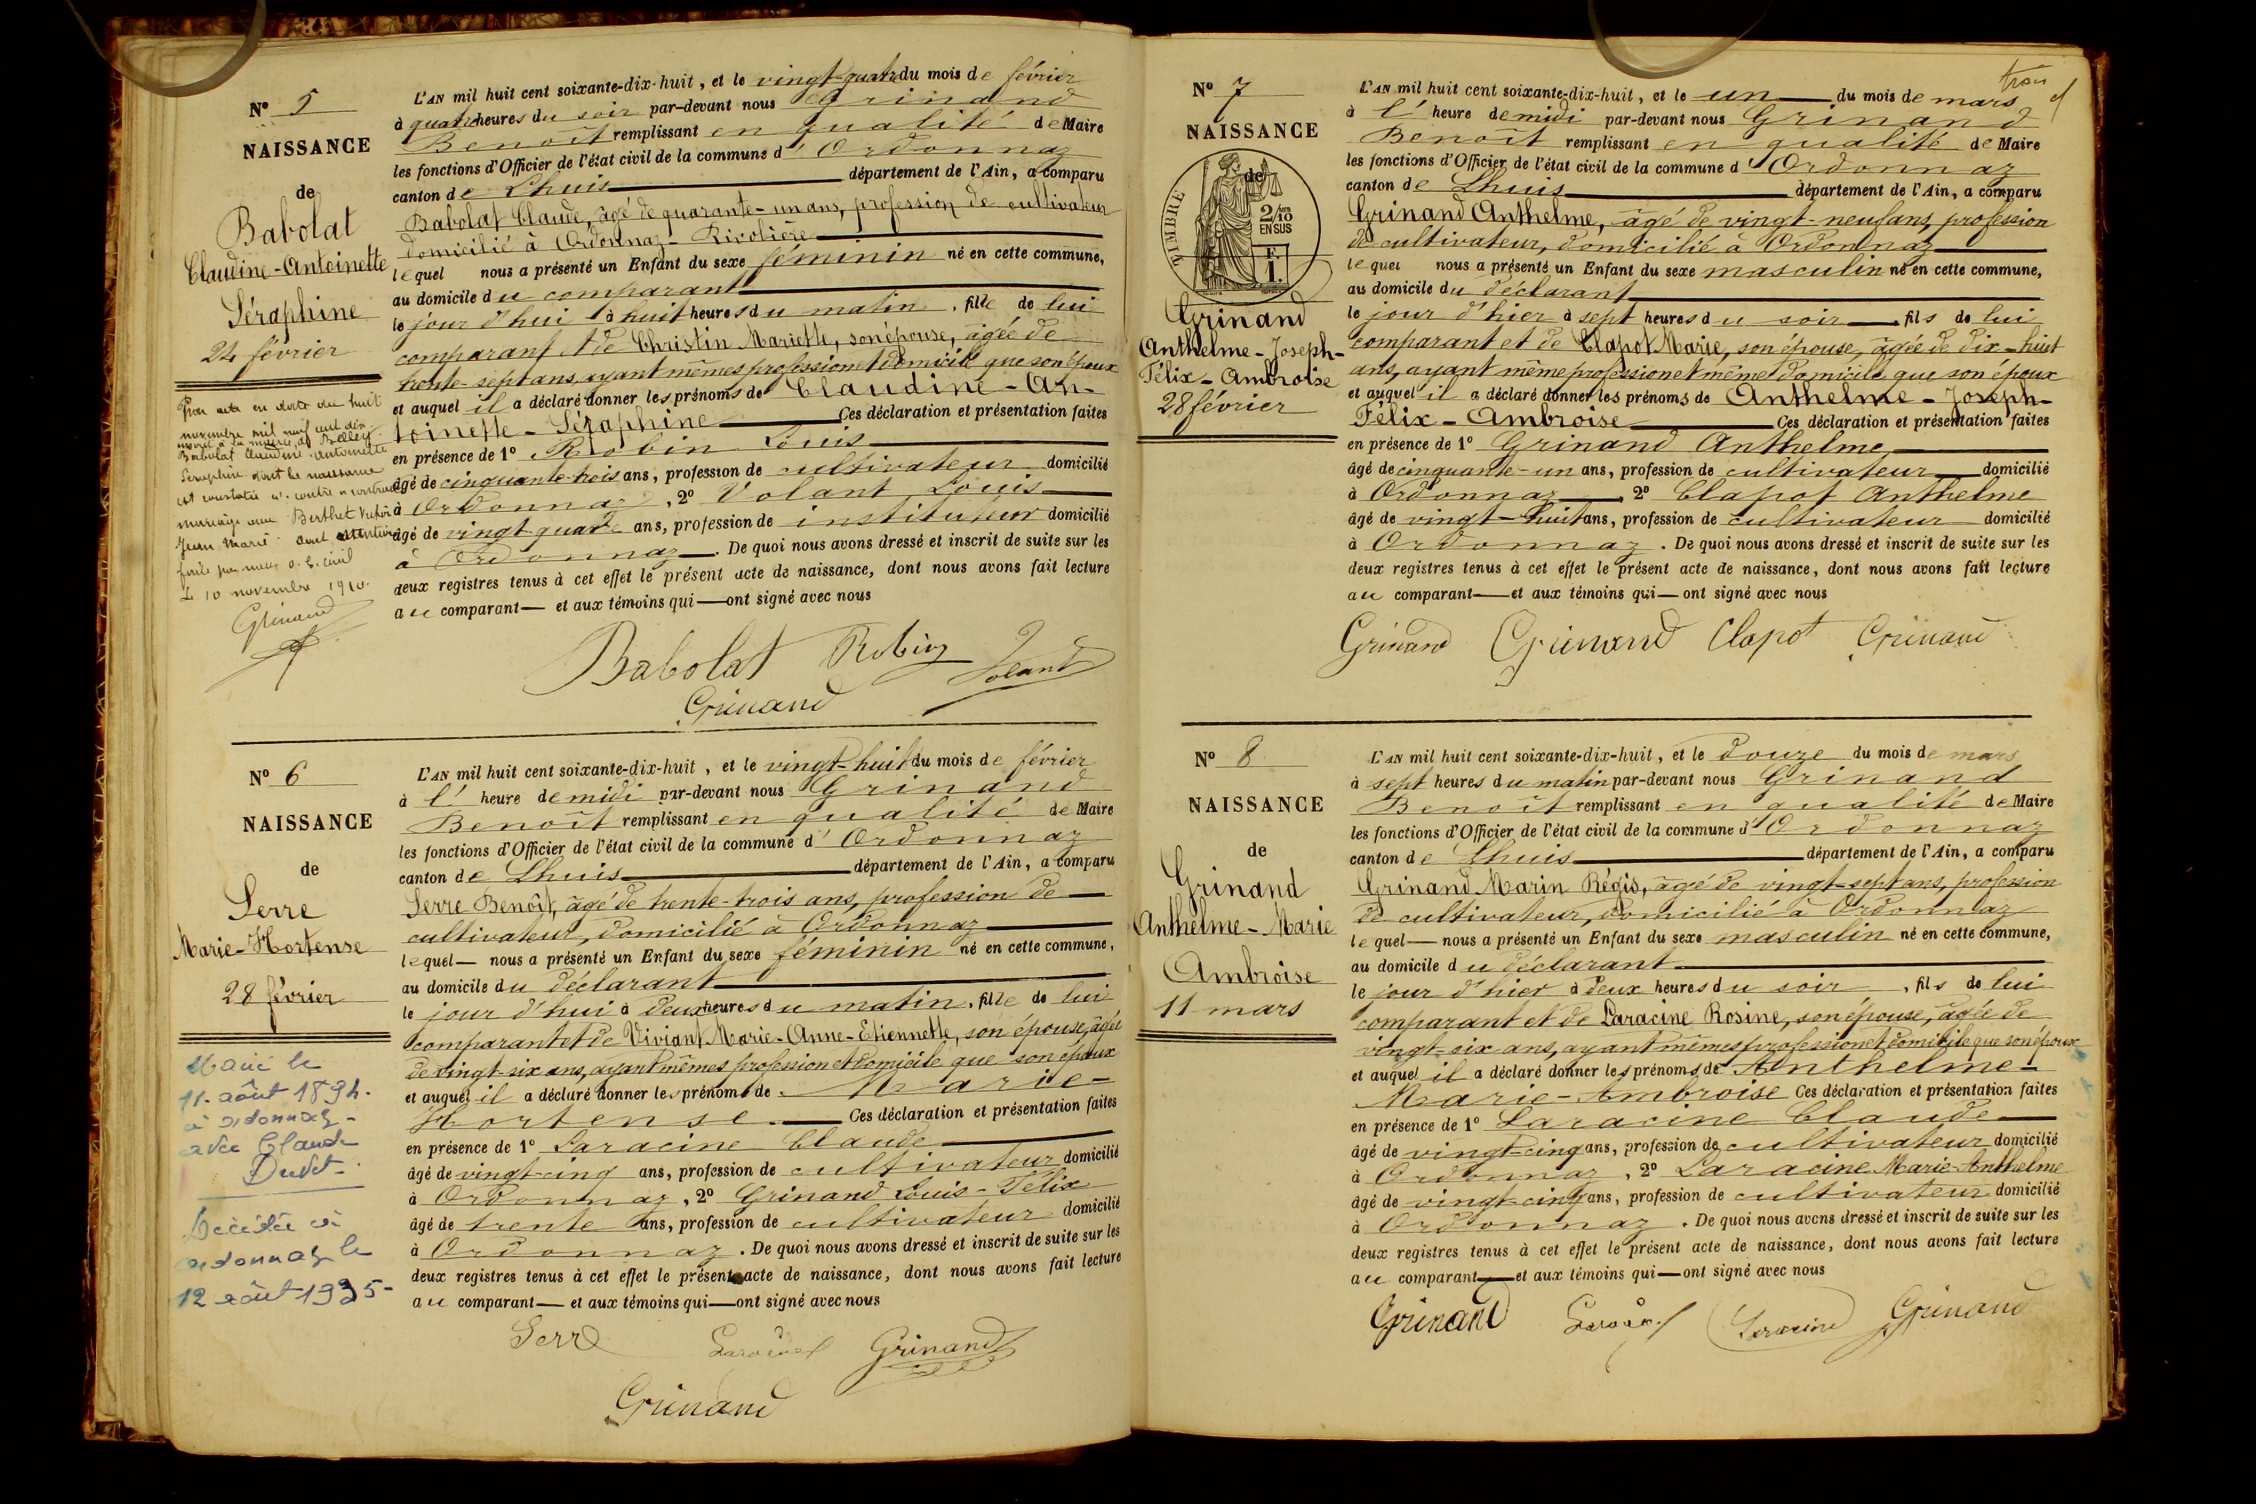 No 5
NAISSANCE
de
Babolat
Claudine-Antoinette
Séraphine
24 février
Par acte en date du huit
novembre mil neuf cent dix
inscrit à la mairie de Belley
Babolat Claudine Antoinette
Séraphine dont la naissance
est constatée ci-contre a contracté
mariage avec Berthet Victor
Jean Marie dont mention
faite par nous O. E. civil
Le 10 novembre 1910.
Grinand
L'AN mil huit cent soixante-dix-huit, et le vingt-quatre du mois de février
à quatre heures du soir par-devant nous Grinand
Benoît remplissant en qualité de Maire
les fonctions d'Officier de l'état civil de la commune d'Ordonnaz
canton de Lhuis département de l'Ain, a comparu
Babolat Claude, âgé de quarante-un ans, profession de cultivateur
domicilié à Ordonnaz-Rivolière
lequel nous a présenté un Enfant du sexe féminin né en cette commune,
au domicile du comparant
le jour d'hui à huit heures du matin, fille de lui
comparant et de Christin Mariette, son épouse, âgée de
trente-sept ans, ayant mêmes profession et domicile que son époux
et auquel il a déclaré donner les prénoms de Claudine-An-
toinette-Séraphine Ces déclaration et présentation faites
en présence de 1º Robin Louis
âgé de cinquante-trois ans, profession de cultivateur domicilié
à Ordonnaz, 2º Volant Louis
âgé de vingt-quatre ans, profession de instituteur domicilié
à Ordonnaz. De quoi nous avons dressé et inscrit de suite sur les
deux registres tenus à cet effet le présent acte de naissance, dont nous avons fait lecture
au comparant et aux témoins qui ont signé avec nous
Babolat Robin Volant
Grinand
No 6
NAISSANCE
de
Serre
Marie-Hortense
28 février
Marié le
11 août 1894.
à ordonnaz
avec Claude
Dubet
Décédée à
ordonnaz le
12 août 1935
L'AN mil huit cent soixante-dix-huit, et le vingt-huit du mois de février
à l' heure de midi par-devant nous Grinand
Benoît remplissant en qualité de Maire
les fonctions d'Officier de l'état civil de la commune d'Ordonnaz
canton de Lhuis département de l'Ain, a comparu
Serre Benoît, âgé de trente-trois ans, profession de
cultivateur, domicilié à Ordonnaz
lequel nous a présenté un Enfant du sexe féminin né en cette commune,
au domicile du déclarant
le jour d'hui à deux heures du matin, fille de lui
comparant et de Viviant Marie-Anne-Etiennette, son épouse, âgée
de vingt-six ans, ayant mêmes profession et domicile que son époux
et auquel il a déclaré donner les prénoms de Marie-
Hortense Ces déclaration et présentation faites
en présence de 1º Laracine Claude
âgé de vingt-cinq ans, profession de cultivateur domicilié
à Ordonnaz, 2º Grinand Louis-Félix
âgé de trente ans, profession de cultivateur domicilié
à Ordonnaz. De quoi nous avons dressé et inscrit de suite sur les
deux registres tenus à cet effet le présent acte de naissance, dont nous avons fait lecture
au comparant et aux témoins qui ont signé avec nous
Serre Laracine Grinand
Grinand
No 7
NAISSANCE
de
TIMBRE
2/10
EN SUS
F.
1.
Grinand
Anthelme-Joseph-
Félix-Ambroise
28 février
trois
L'AN mil huit cent soixante-dix-huit, et le un du mois de mars
à l' heure de midi par-devant nous Grinand
Benoît remplissant en qualité de Maire
les fonctions d'Officier de l'état civil de la commune d'Ordonnaz
canton de Lhuis département de l'Ain, a comparu
Grinand Anthelme, âgé de vingt-neuf ans, profession
de cultivateur, domicilié à Ordonnaz
lequel nous a présenté un Enfant du sexe masculin né en cette commune,
au domicile du déclarant
le jour d'hier à sept heures du soir, fils de lui
comparant et de Clapot Marie, son épouse, âgée de dix-huit
ans, ayant même profession et même domicile que son époux
et auquel il a déclaré donner les prénoms de Anthelme-Joseph-
Félix-Ambroise Ces déclaration et présentation faites
en présence de 1º Grinand Anthelme
âgé de cinquante-un ans, profession de cultivateur domicilié
à Ordonnaz, 2º Clapot Anthelme
âgé de vingt-huit ans, profession de cultivateur domicilié
à Ordonnaz. De quoi nous avons dressé et inscrit de suite sur les
deux registres tenus à cet effet le présent acte de naissance, dont nous avons fait lecture
au comparant et aux témoins qui ont signé avec nous
Grinand Grinand Clapot Grinand
No 8
NAISSANCE
de
Grinand
Anthelme-Marie
Ambroise
11 mars
L'AN mil huit cent soixante-dix-huit, et le douze du mois de mars
à sept heures du matin par-devant nous Grinand
Benoît remplissant en qualité de Maire
les fonctions d'Officier de l'état civil de la commune d'Ordonnaz
canton de Lhuis département de l'Ain, a comparu
Grinand Marin Régis, âgé de vingt-sept ans, profession
de cultivateur, domicilié à Ordonnaz
lequel nous a présenté un Enfant du sexe masculin né en cette commune,
au domicile du déclarant
le jour d'hier à deux heures du soir, fils de lui
comparant et de Laracine Rosine, son épouse, âgée de
vingt-six ans, ayant mêmes profession et domicile que son époux
et auquel il a déclaré donner les prénoms de Anthelme-
Marie-Ambroise Ces déclaration et présentation faites
en présence de 1º Laracine Claude
âgé de vingt-cinq ans, profession de cultivateur domicilié
à Ordonnaz, 2º Laracine Marie-Anthelme
âgé de vingt-cinq ans, profession de cultivateur domicilié
à Ordonnaz. De quoi nous avons dressé et inscrit de suite sur les
deux registres tenus à cet effet le présent acte de naissance, dont nous avons fait lecture
au comparant et aux témoins qui ont signé avec nous
Grinand Laracine Laracine Grinand